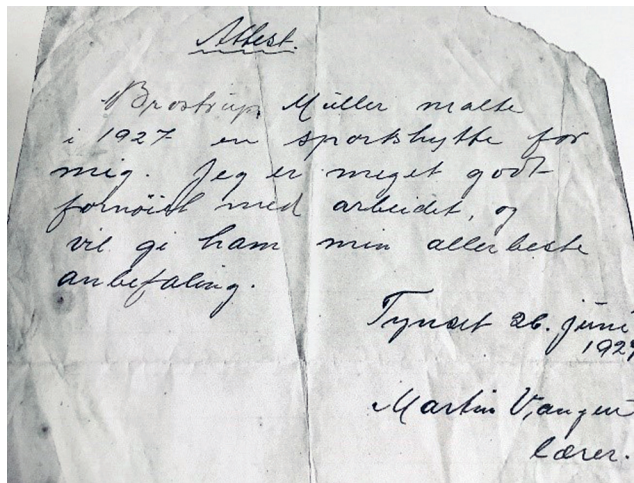 Attest.
Brostrup Müller malte
i 1927 en sportshytte for
mig. Jeg er meget godt
fornöiet med arbeidet, og
vil gi ham min allerbeste
anbefaling.
Tynset 26. juni
1927
Martin Vangen
lærer.